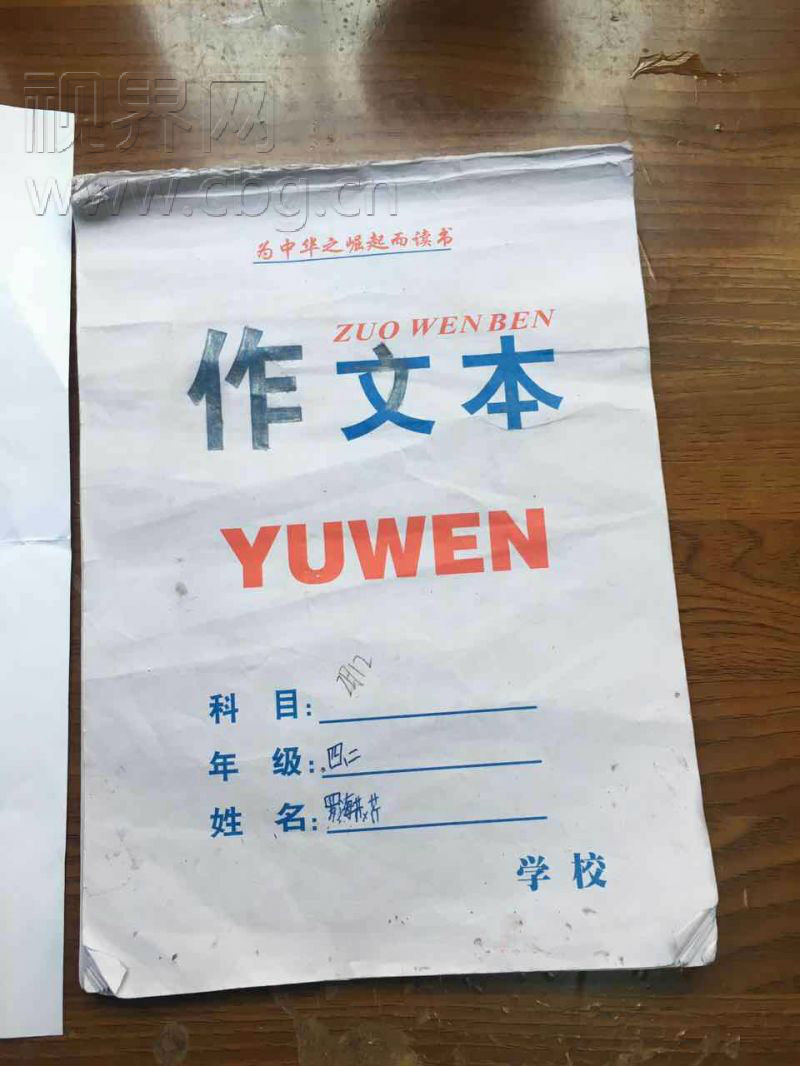 视界网
www.cbg.cn
为中华之崛起而读书
ZUO WEN BEN
作文本
YUWEN
科 目:
年 级: 四二
姓 名: 罗海燕
学校